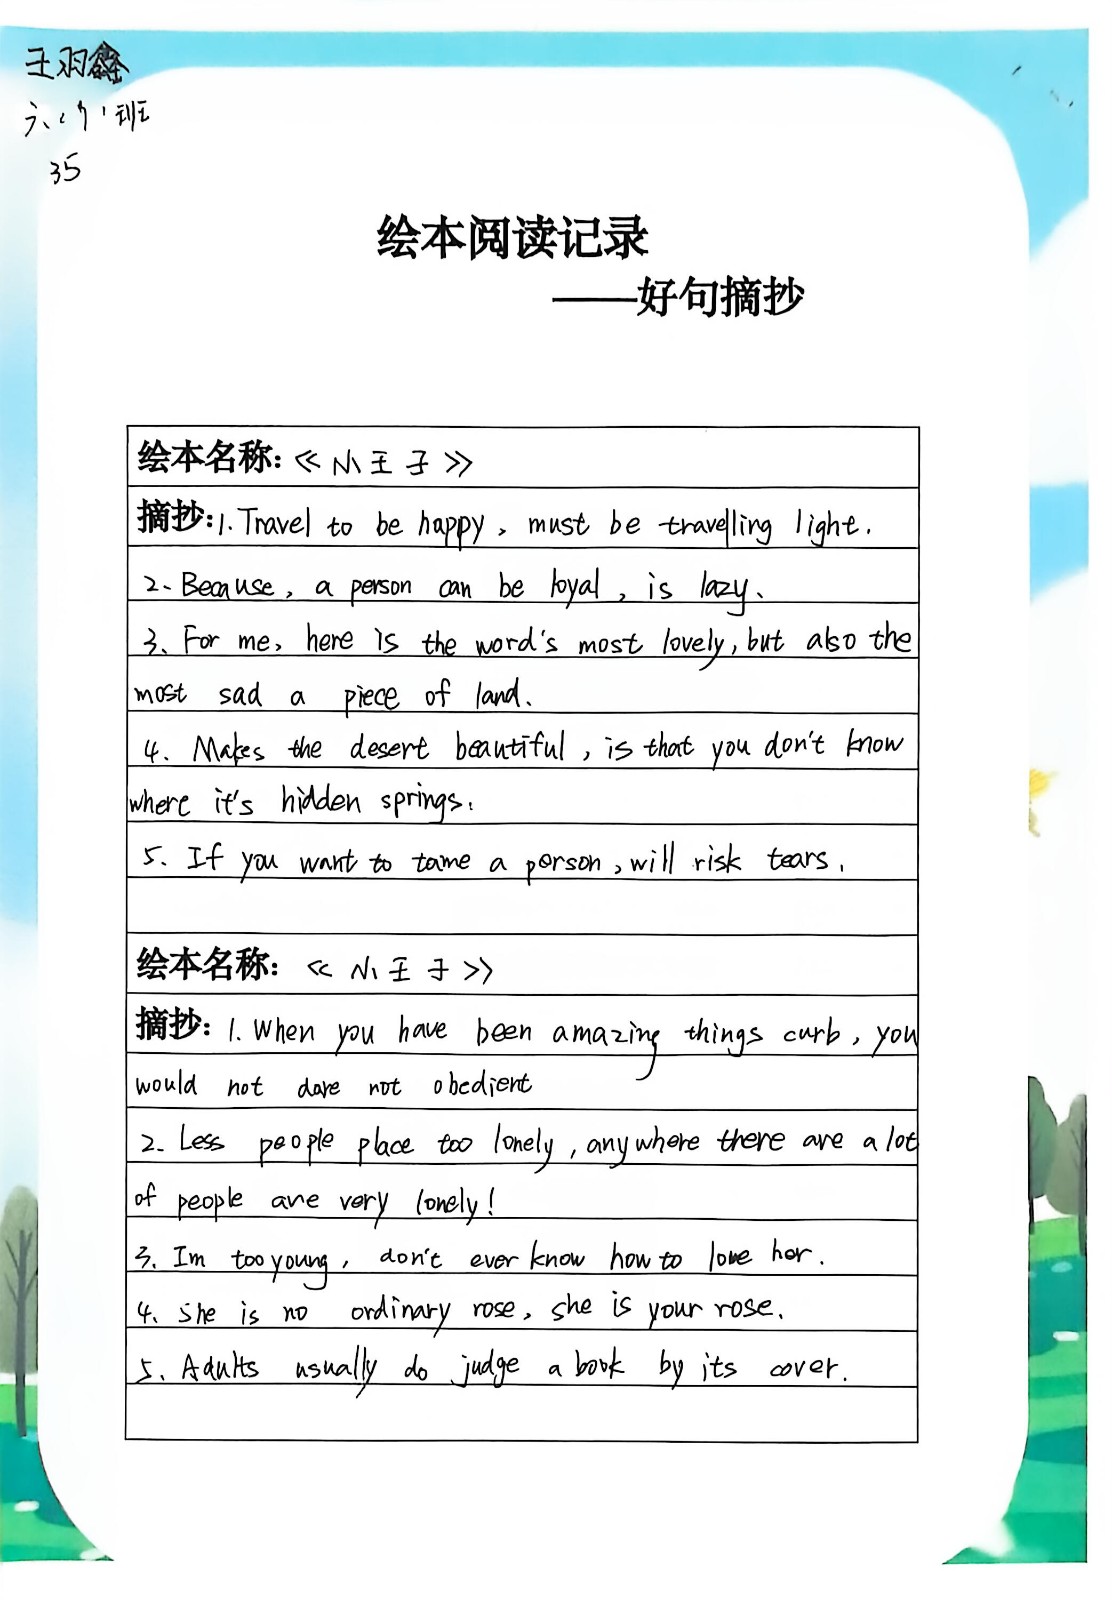 王羽鑫
六（7）班
35
绘本阅读记录
——好句摘抄
绘本名称:《小王子》
摘抄:1.Travel to be happy, must be travelling light.
2. Because, a person can be loyal, is lazy.
3. For me, here is the word's most lovely, but also the
most sad a piece of land.
4. Makes the desert beautiful, is that you don't know
where it's hidden springs.
5. If you want to tame a person, will risk tears.
绘本名称: 《小王子》
摘抄: 1. When you have been amazing things curb, you
would not dare not obedient
2. Less people place too lonely, anywhere there are a lot
of people are very lonely!
3. Im too young, don't ever know how to love her.
4. She is no ordinary rose, she is your rose.
5. Adults usually do judge a book by its cover.